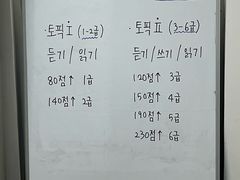 · 토픽 I (1-2급)
듣기 / 읽기
80점↑ 1급
140점↑ 2급
· 토픽 II (3-6급)
듣기 / 쓰기 / 읽기
120점↑ 3급
150점↑ 4급
190점↑ 5급
230점↑ 6급